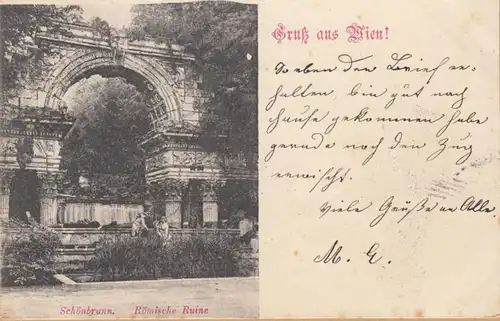 Gruß aus Wien!
So eben den Brief er-
halten, bin gut nach
hause gekommen habe
gerade noch den Zug
erwischt.
Viele Grüße an Alle
M. E.
Schönbrunn. Römische Ruine